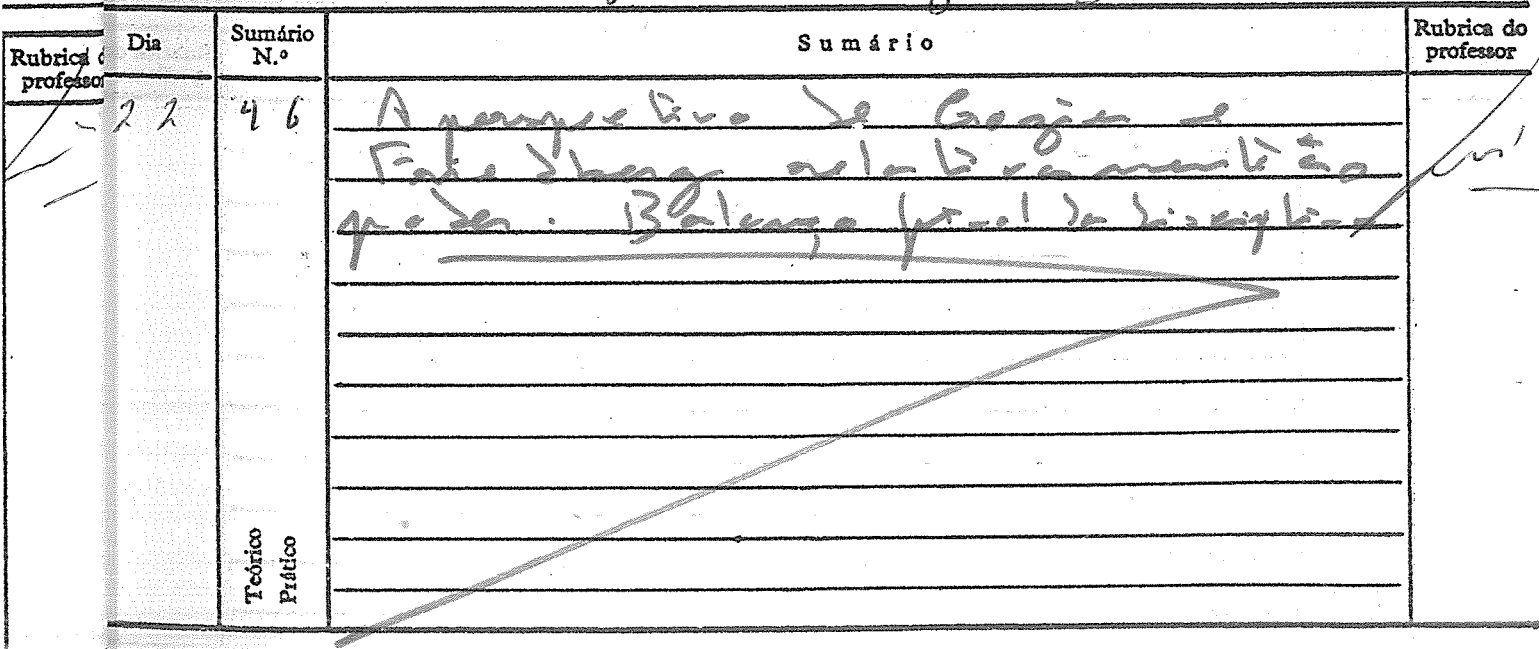 Rubrica d
professor
Dia
Sumário
N.º
Sumário
Rubrica do
professor
22
46
A perspectiva de Crozier e
Friedberg relativamente ao
poder. Balanço final da disciplina
Teórico
Prático